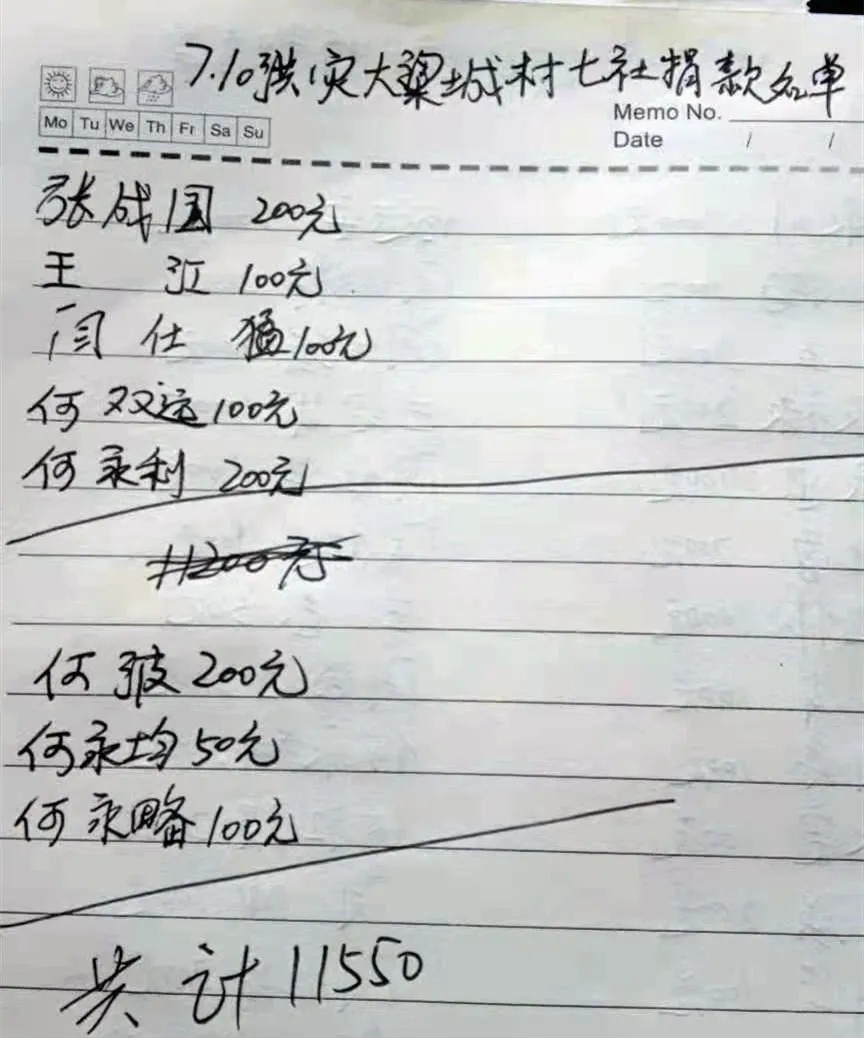 7.10洪灾大梁城村七社捐款名单
Mo Tu We Th Fr Sa Su
Memo No.
Date / /
张成国 200元
王 江 100元
闫仕猛 100元
何双运 100元
何永利 200元
11200元
何 200元
何永均 50元
何永略 100元
共计 11550